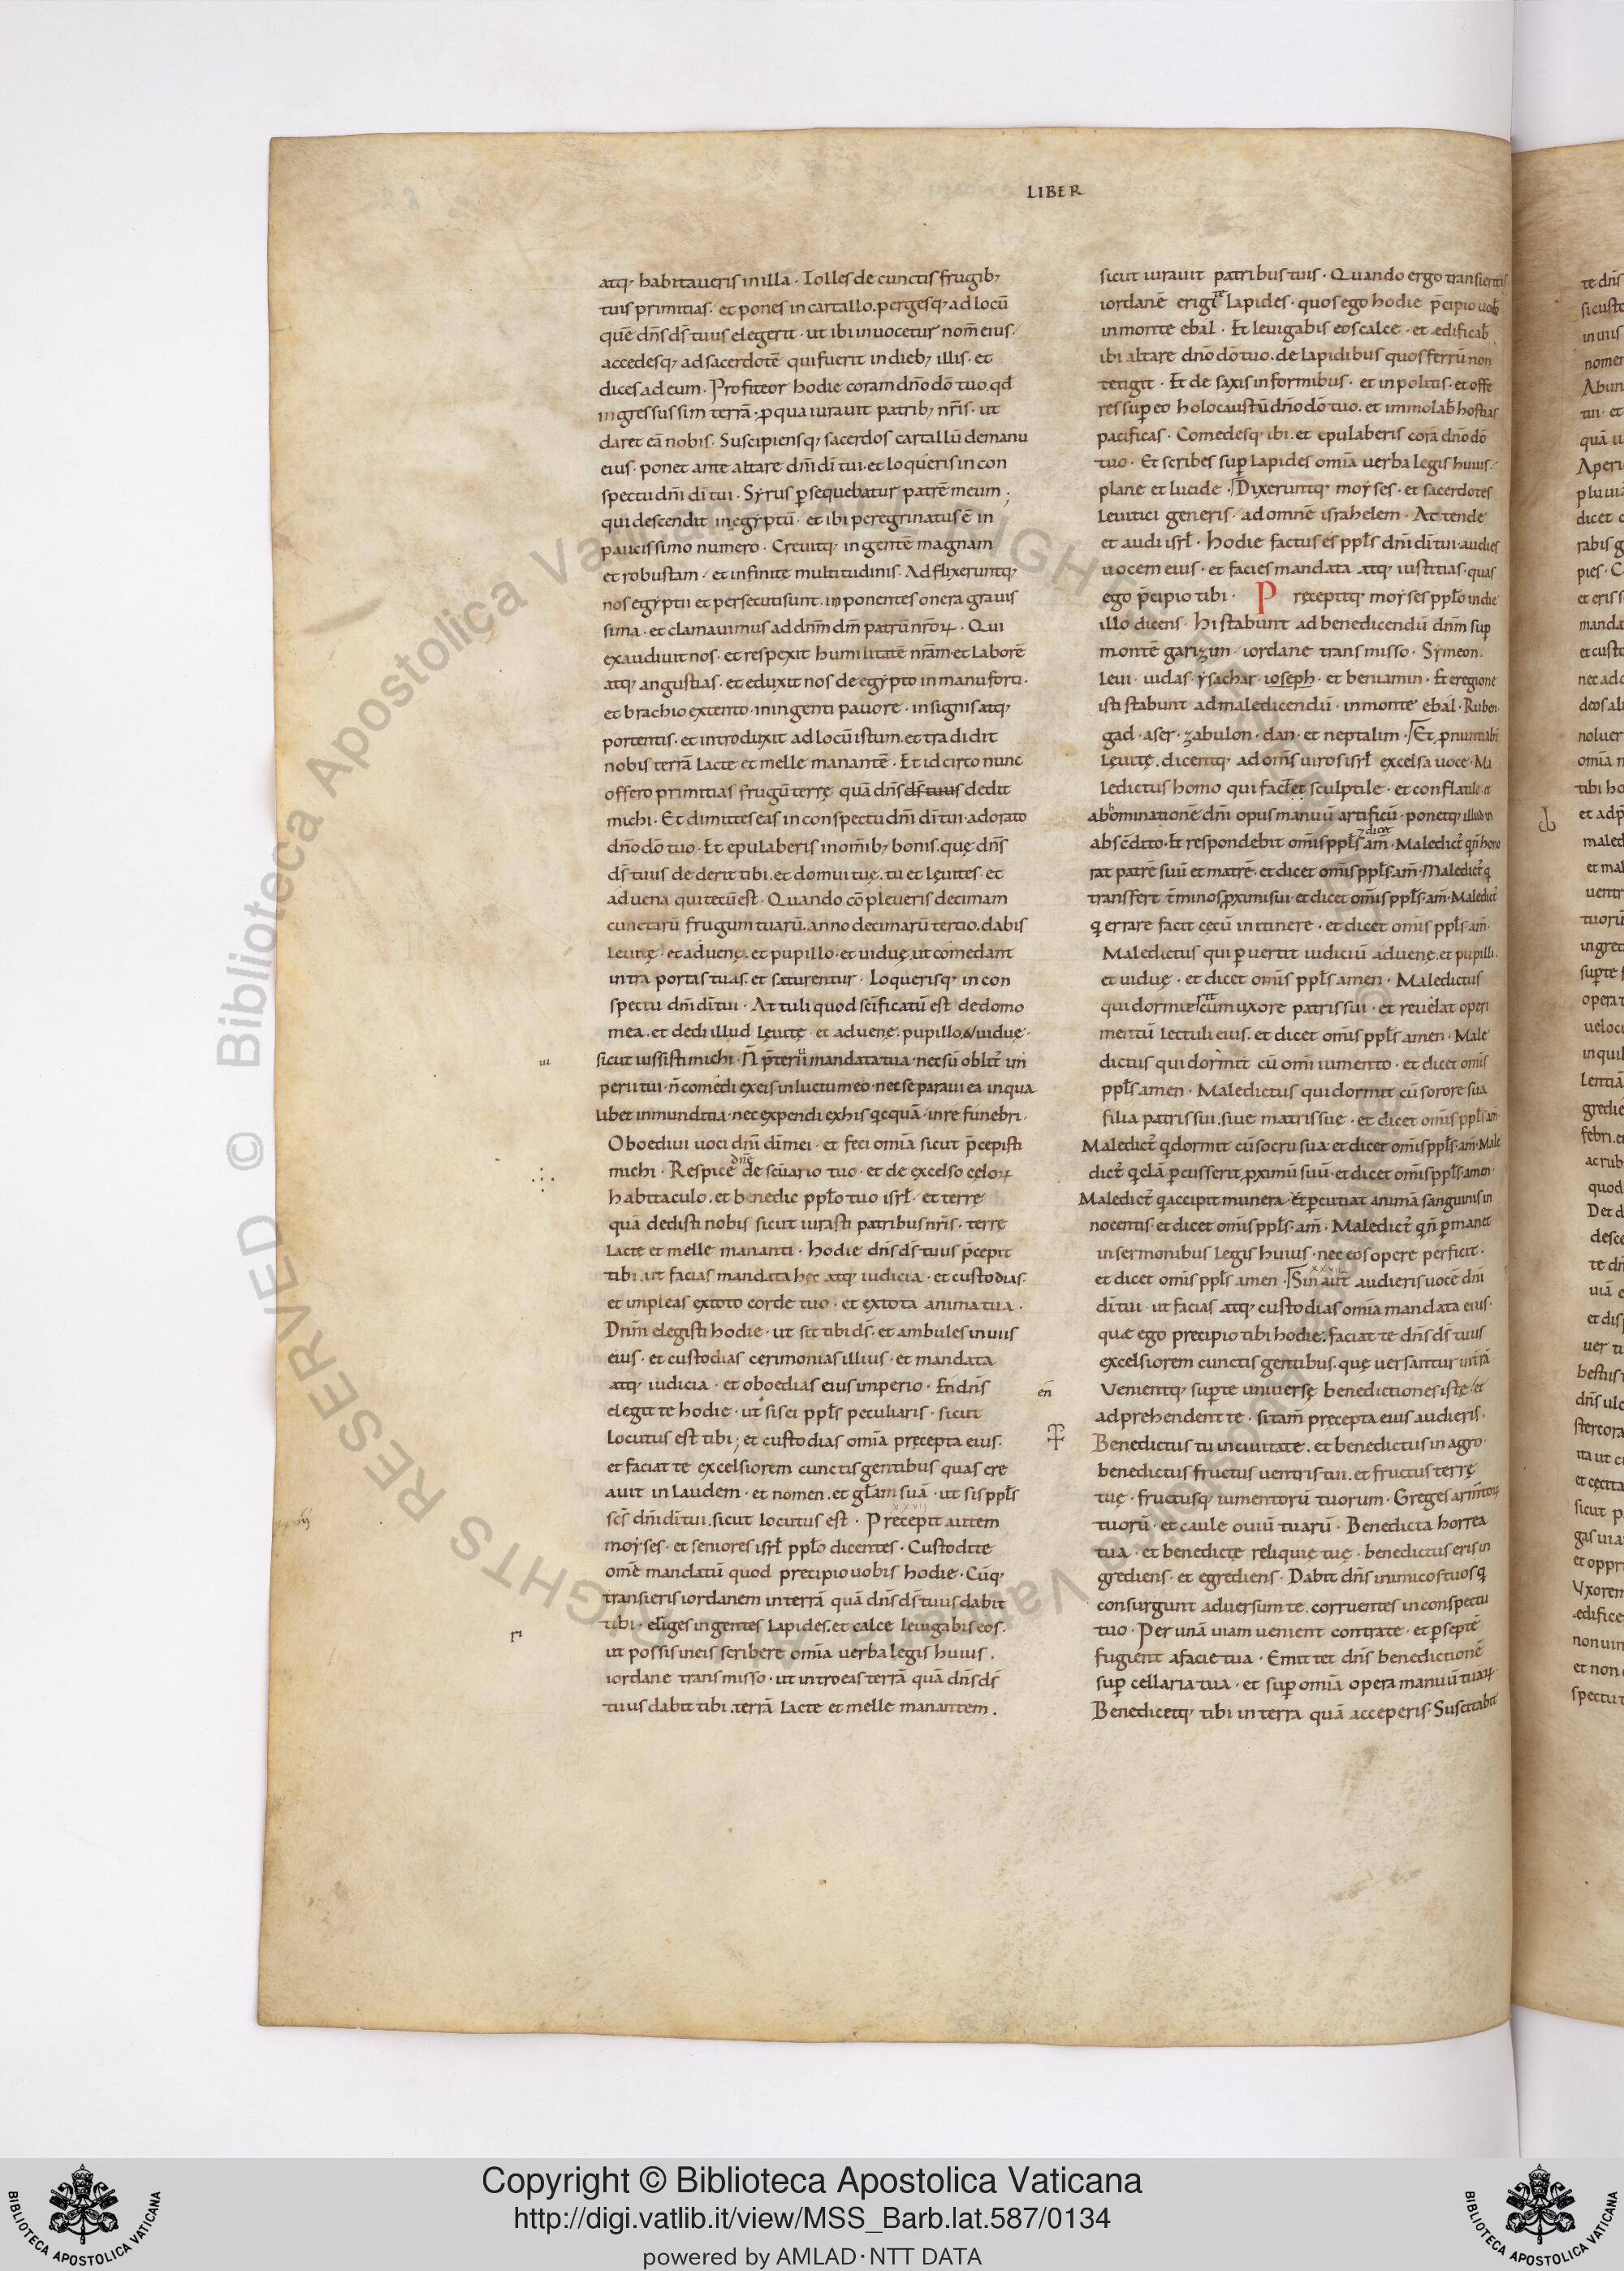 LIBER
atq; habitaueris in illa · Tolles de cunctis frugib;
tuis primitias · et pones in cartallo. pergesq; ad locū
quē dn̄s ds̄ tuus elegerit · ut ibi inuocetur nom̄ eius ·
accedesq; ad sacerdotē qui fuerit in dieb; illis · et
dices ad eum · Profiteor hodie coram dn̄o dō tuo. qd̄
ingressus sim terrā · ꝓ qua iurauit patrib; nr̄is · ut
daret eā nobis · Suscipiensq; sacerdos cartallū de manu
eius · ponet ante altare dn̄i dī tui · et loqueris in con
spectu dn̄i dī tui · Sẏrus ꝑsequebatur patrē meum ;
qui descendit in egẏptū · et ibi peregrinatus ē in
paucissimo numero · Creuitq; in gentē magnam
et robustam · et infinitę multitudinis · Adflixeruntq;
nos egẏptii et persecuti sunt. inponentes onera grauis
sima · et clamauimus ad dn̄m dm̄ patrū nr̄oꝝ · Qui
exaudiuit nos · et respexit humilitatē nr̄am · et laborē
atq; angustias · et eduxit nos de egẏpto in manu forti ·
et brachio extento · in ingenti pauore · in signis atq;
portentis · et introduxit ad locū istum. et tradidit
nobis terrā lacte et melle manantē · Et idcirco nunc
offero primitias frugū terrę quā dn̄s ds̄ tuus dedit
michi · Et dimittes eas in conspectu dn̄i dī tui · adorato
dn̄o dō tuo · Et epulaberis in om̄ib; bonis. quę dn̄s
ds̄ tuus dederit tibi. et domui tuę. tu et leuites · et
aduena qui tecū est · Quando cōpleueris decimam
cunctarū frugum tuarū. anno decimarū tertio. dabis
leuitę · et aduenę. et pupillo · et uiduę. ut comedant
intra portas tuas. et saturentur · Loquerisq; in con
spectu dn̄i dī tui · Attuli quod sc̄ificatū est de domo
mea. et dedi illud leuitę · et aduenę. pupillo. & uiduę ·
iii
sicut iussisti michi · N̄ p̄teriui mandata tua · nec sū oblit᷒ im
perii tui · n̄ comedi ex eis in luctu meo · nec separaui ea in qua
libet inmunditia · nec expendi ex his qicquā · in re funebri ·
Oboediui uoci dn̄i dī mei · et feci om̄ia sicut p̄cepisti
michi · Respice dn̄e de sc̄uario tuo · et de excelso cęloꝝ
habitaculo. et benedic ppl̄o tuo isrł · et terrę
quā dedisti nobis sicut iurasti patribus nr̄is · terrę
lacte et melle mananti · Hodie dn̄s ds̄ tuus p̄cepit
tibi. ut facias mandata hęc atq; iudicia · et custodias ·
et impleas ex toto corde tuo · et ex tota anima tua ·
Dn̄m elegisti hodie · ut sit tibi ds̄ · et ambules in uiis
eius · et custodias cerimonias illius · et mandata
atq; iudicia · et oboedias eius imperio · En dn̄s
elegit te hodie · ut sis ei ppl̄s peculiaris · sicut
locutus est tibi ; et custodias om̄ia pręcepta eius ·
et faciat te excelsiorem cunctis gentibus quas cre
auit in laudem · et nomen. et gl̄am suā · ut sis ppl̄s
sc̄s dn̄i dī tui. sicut locutus est · Precepit autem
xxvii
moẏses · et seniores isrł ppl̄o dicentes · Custodite
om̄e mandatū quod precipio uobis hodie · Cūq;
transieris iordanem in terrā quā dn̄s ds̄ tuus dabit
tibi · eriges ingentes lapides. et calce leuigabis eos ·
ut possis in eis scribere om̄ia uerba legis huius ·
iordane transmisso · ut introeas terrā quā dn̄s ds̄
tuus dabit tibi. terrā lacte et melle manantem ·
sicut iurauit patribus tuis · Quando ergo transieritis
iordanē erigite lapides · quos ego hodie p̄cipio uob̄
in monte ebal · Et leuigabis eos calce · et ędificab̄
ibi altare dn̄o dō tuo. de lapidibus quos ferrū non
tetigit · Et de saxis informibus · et inpolitis · et offe
res suꝑ eo holocaustū dn̄o dō tuo. et immolab̄ hostias
pacificas · Comedesq; ibi. et epulaberis corā dn̄o dō
tuo · Et scribes suꝑ lapides om̄ia uerba legis huius ·
plane et lucide · Dixeruntq; moẏses · et sacerdotes
leuitici generis · ad omnē israhelem · Attende
et audi isrł · Hodie factus es ppl̄s dn̄i dī tui · audies
uocem eius · et facies mandata atq; iustitias · quas
ego p̄cipio tibi · Pręcepitq; moẏses ppl̄o in die
illo dicens · Hi stabunt ad benedicendū dn̄m suꝑ
montē garizim · iordane transmisso · Sẏmeon.
leui · iudas · ẏsachar · ioseph · et beniamin · Et e regione
isti stabunt ad maledicendū · in monte ebal · Ruben ·
gad · aser · zabulon · dan · et neptalim · Et ꝓnuntiab̄
leuitę. dicentq; ad om̄s uiros isrł excelsa uoce · Ma
ledictus homo qui facit sculptile · et conflatile · et
abominationē dn̄i opus manuū artificū · ponetq; illud in
absc̄dito · Et respondebit om̄is ppl̄s & dicet am̄ · Maledict᷒ qi n̄ hono
rat patrē suū et matrē · et dicet om̄is ppl̄s · am̄ · Maledict᷒ qi
transfert t̄minos ꝓximi sui · et dicet om̄is ppl̄s · am̄ · Maledict᷒
qi errare facit cęcū in itinere · et dicet om̄is ppl̄s · am̄ ·
Maledictus qui ꝑuertit iudiciū aduenę. et pupilli ·
et uiduę · et dicet om̄is ppl̄s amen · Maledictus
qui dormit cum uxore patris sui · et reuelat operi
mentū lectuli eius. et dicet om̄is ppl̄s amen · Male
dictus qui dormit cū om̄i iumento · et dicet om̄is
ppl̄s amen · Maledictus qui dormit cū sorore sua
filia patris sui. siue matris suę · et dicet om̄is ppl̄s am̄ ·
Maledict᷒ qi dormit cū socru sua · et dicet om̄is ppl̄s · am̄ · Male
dict᷒ qi clā ꝑcusserit ꝓximū suū · et dicet om̄is ppl̄s · amen ·
Maledict᷒ qi accipit munera · ut ꝑcutiat animā sanguinis in
nocentis · et dicet om̄is ppl̄s · am̄ · Maledict᷒ qi n̄ ꝑmanet
in sermonibus legis huius · nec eos opere perficit ·
et dicet om̄is ppl̄s amen · Sin aut̄ audieris uocē dn̄i
dī tui · ut facias atq; custodias om̄ia mandata eius ·
quæ ego precipio tibi hodie : faciat te dn̄s ds̄ tuus
excelsiorem cunctis gentibus. quę uersantur in t̄rā
Uenientq; suꝑ te uniuersę benedictiones istę · et
adprehendent te · si tam̄ pręcepta eius audieris ·
Benedictus tu in ciuitate. et benedictus in agro ·
benedictus fructus uentris tui. et fructus terrę
tuę · fructusq; iumentorū tuorum · Greges arm̄toꝝ
tuorū · et caule ouiū tuarū · Benedicta horrea
tua · et benedictę reliquię tuę · benedictus eris in
grediens · et egrediens · Dabit dn̄s inimicos tuos qi
consurgunt aduersum te. corruentes in conspectu
tuo · Per unā uiam uenient contra te · et ꝑ septē
fugient a facie tua · Emittet dn̄s benedictionē
suꝑ cellaria tua · et suꝑ om̄ia opera manuū tuaꝝ ·
Benedicetq; tibi in terra quā acceperis · Suscitabit
Copyright © Biblioteca Apostolica Vaticana
http://digi.vatlib.it/view/MSS_Barb.lat.587/0134
powered by AMLAD·NTT DATA